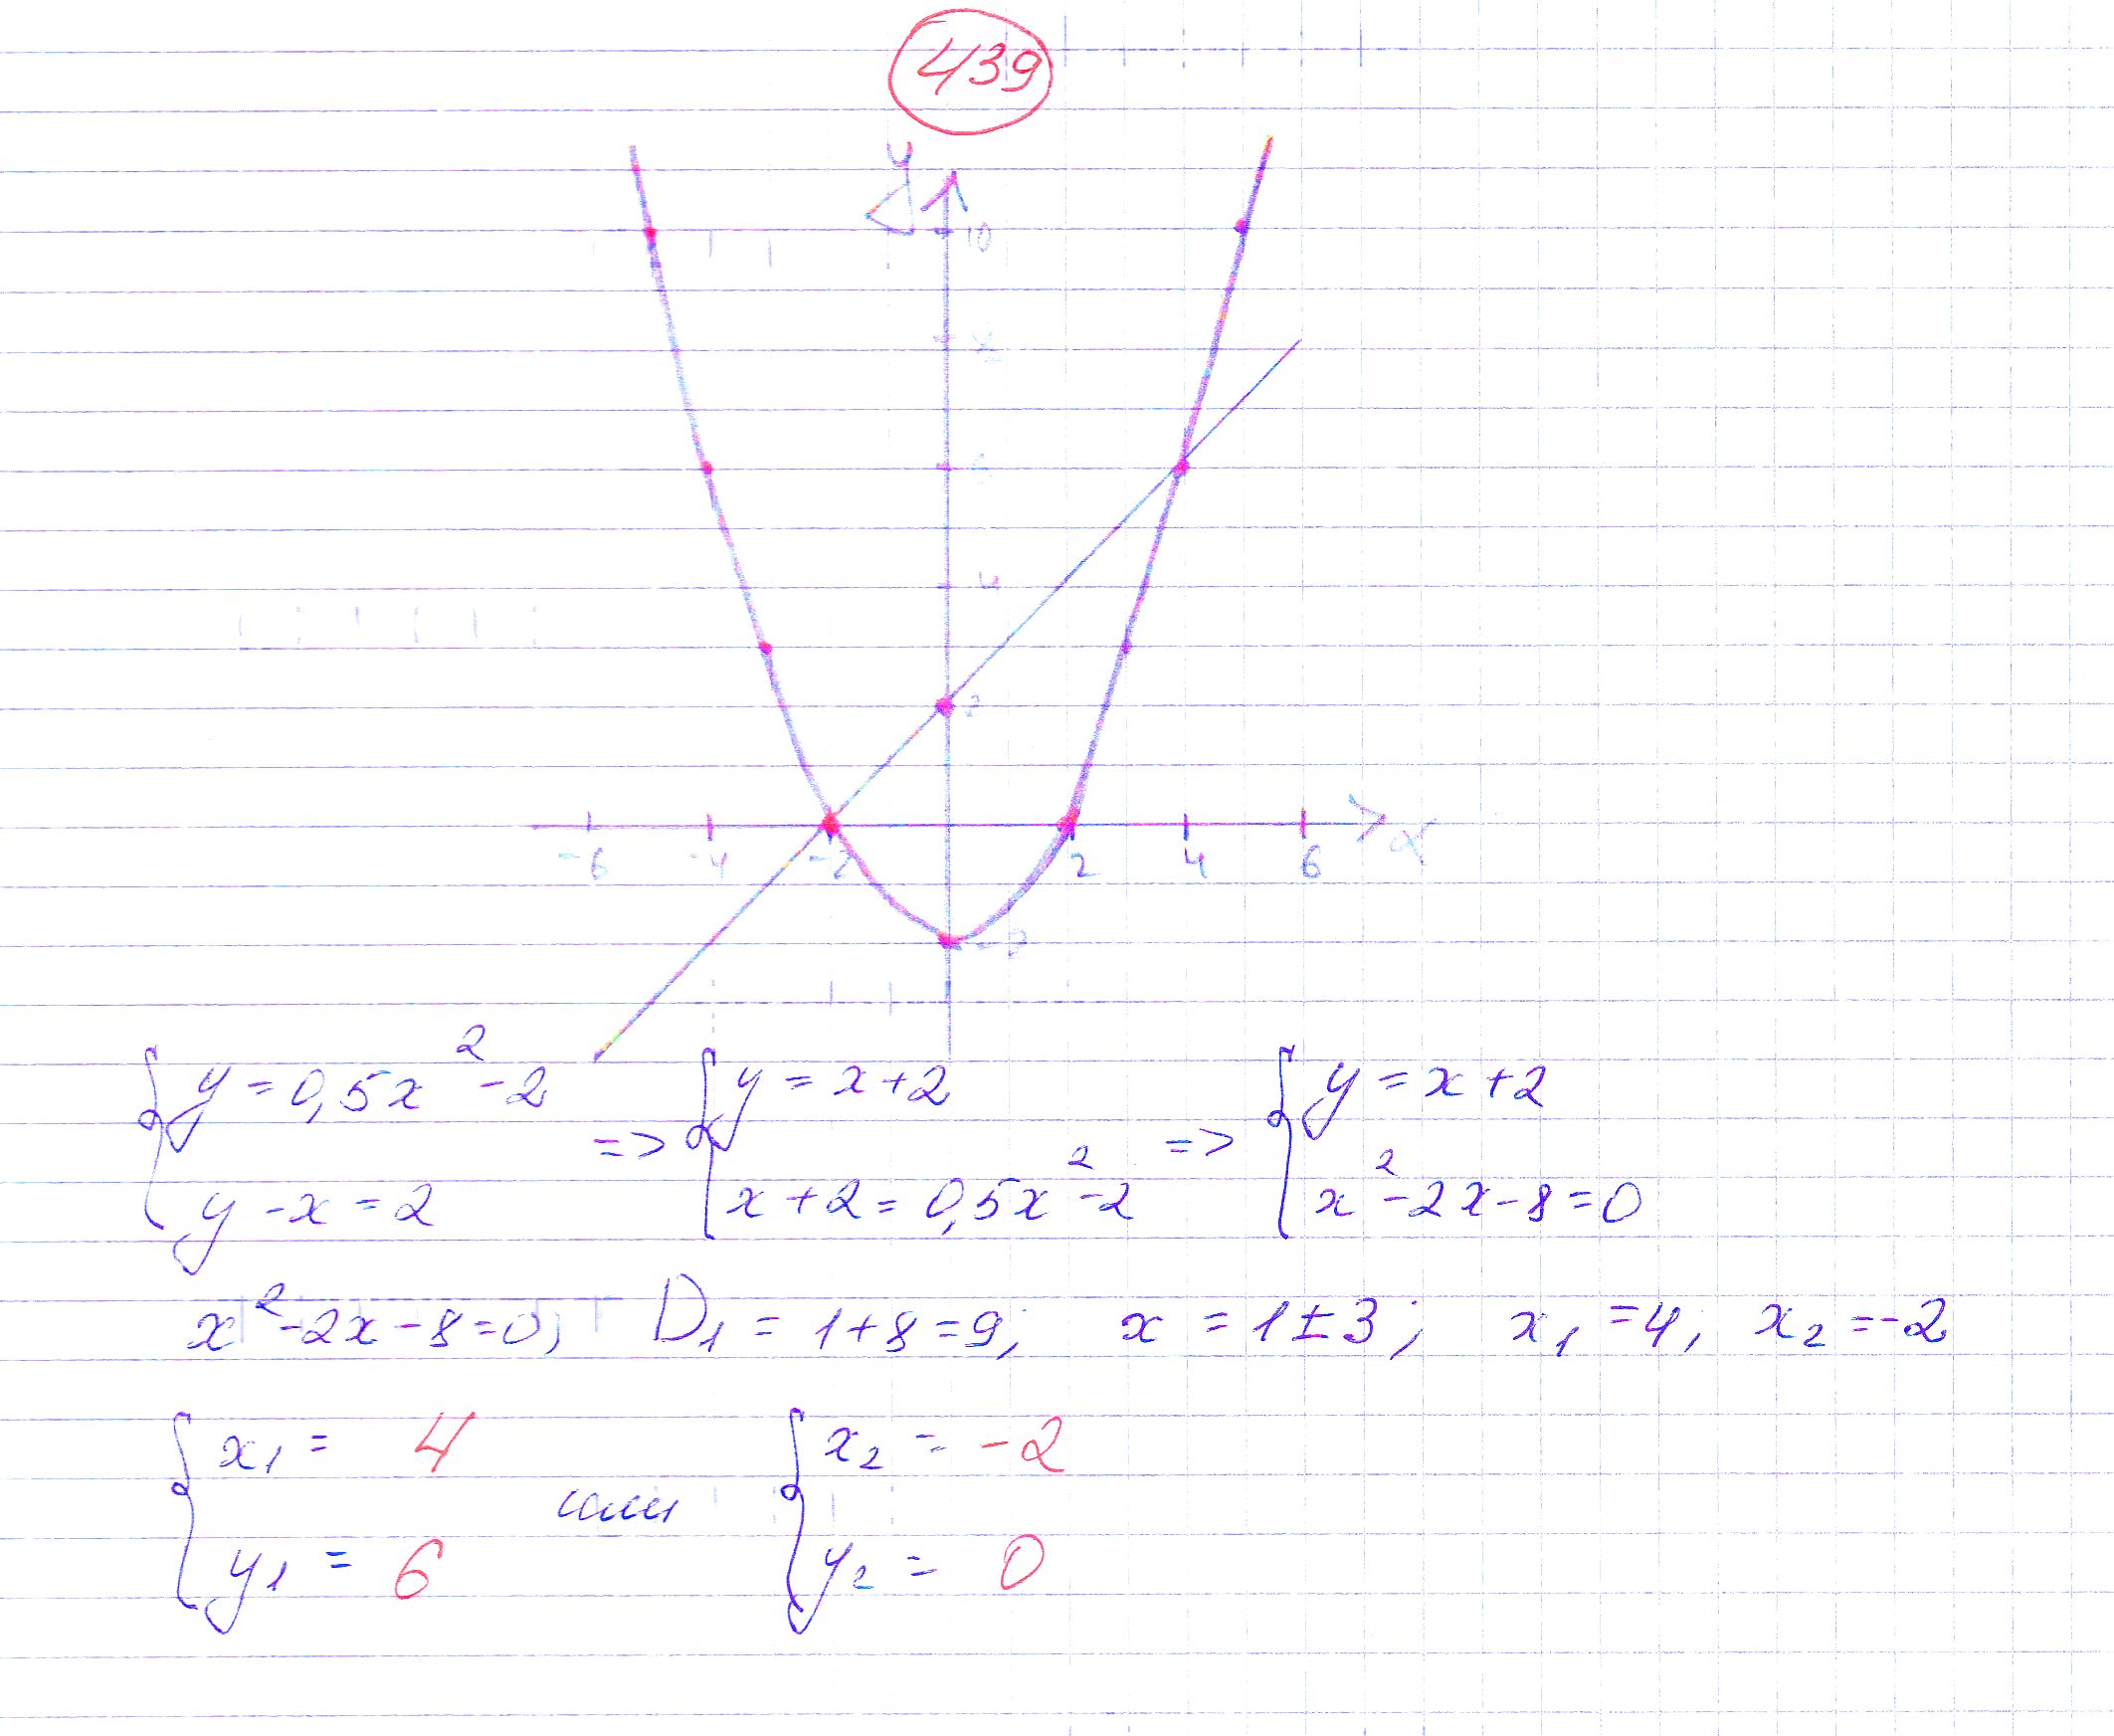 439
y
10
8
6
4
2
-6 -4 -2 2 4 6 x
-2
{ y = 0,5x² - 2 => { y = x + 2 => { y = x + 2
y - x = 2 x + 2 = 0,5x² - 2 x² - 2x - 8 = 0
x² - 2x - 8 = 0; D₁ = 1 + 8 = 9; x = 1 ± 3; x₁ = 4; x₂ = -2
{ x₁ = 4 или { x₂ = -2
y₁ = 6 y₂ = 0